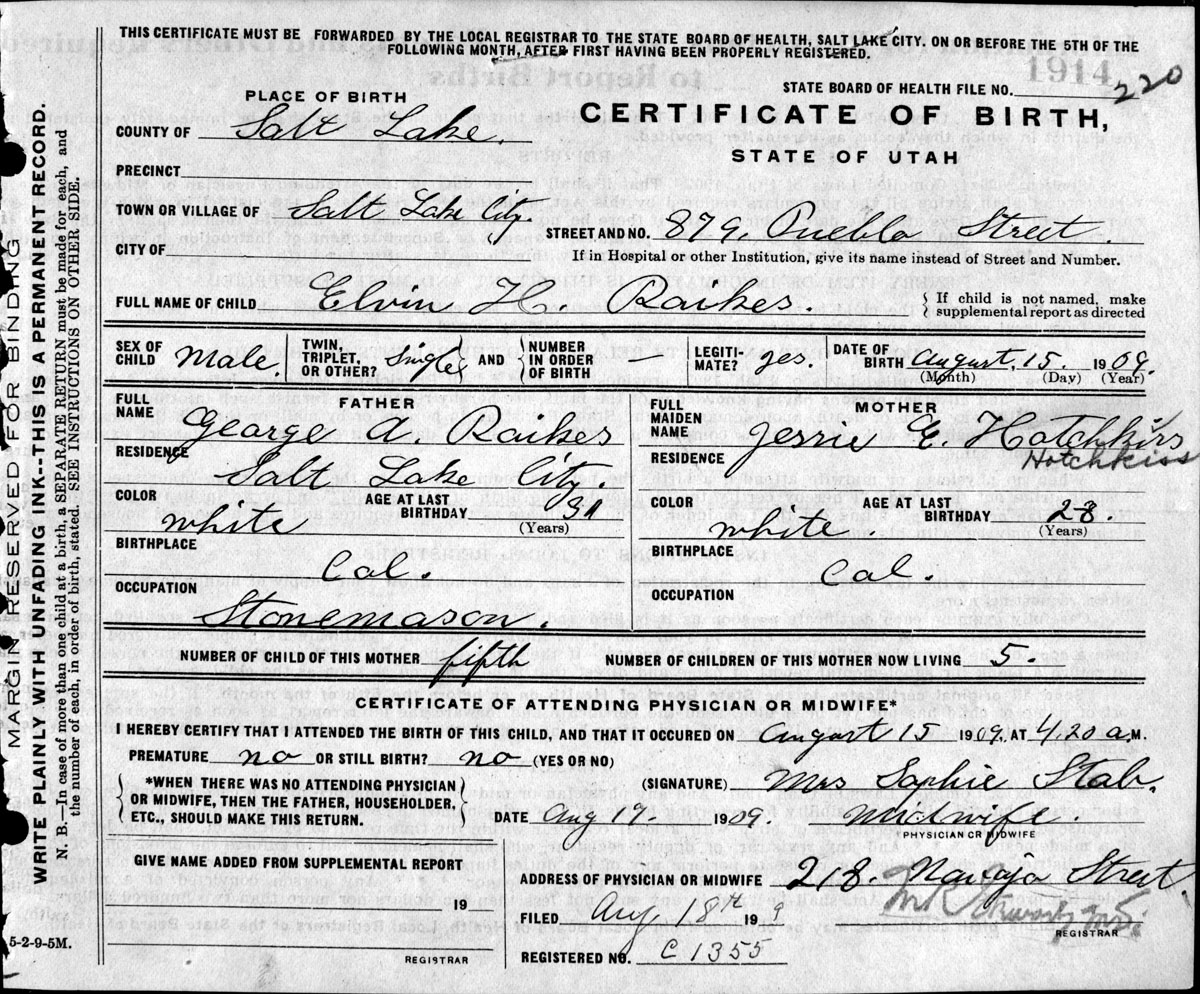 THIS CERTIFICATE MUST BE FORWARDED BY THE LOCAL REGISTRAR TO THE STATE BOARD OF HEALTH, SALT LAKE CITY. ON OR BEFORE THE 5TH OF THE
FOLLOWING MONTH, AFTER FIRST HAVING BEEN PROPERLY REGISTERED.
1914
STATE BOARD OF HEALTH FILE NO. 220
PLACE OF BIRTH
CERTIFICATE OF BIRTH,
STATE OF UTAH
COUNTY OF Salt Lake.
PRECINCT
TOWN OR VILLAGE OF Salt Lake City.
STREET AND NO. 879, Pueblo Street.
CITY OF
If in Hospital or other Institution, give its name instead of Street and Number.
FULL NAME OF CHILD Elvin H. Raikes.
If child is not named, make
supplemental report as directed
SEX OF CHILD Male. TWIN, TRIPLET, OR OTHER? Single AND NUMBER IN ORDER OF BIRTH — LEGITI-MATE? yes. DATE OF BIRTH August, 15. 1909.
(Month) (Day) (Year)
FATHER
FULL NAME George A. Raikes
RESIDENCE Salt Lake City
COLOR white AGE AT LAST BIRTHDAY 31
(Years)
BIRTHPLACE Cal.
OCCUPATION Stonemason.
MOTHER
FULL MAIDEN NAME Jessie E. Hotchkiss
Hotchkiss
RESIDENCE
COLOR white. AGE AT LAST BIRTHDAY 28.
(Years)
BIRTHPLACE Cal.
OCCUPATION
NUMBER OF CHILD OF THIS MOTHER fifth NUMBER OF CHILDREN OF THIS MOTHER NOW LIVING 5.
CERTIFICATE OF ATTENDING PHYSICIAN OR MIDWIFE*
I HEREBY CERTIFY THAT I ATTENDED THE BIRTH OF THIS CHILD, AND THAT IT OCCURED ON August 15 1909, AT 4.20 a.M.
PREMATURE no OR STILL BIRTH? no (YES OR NO)
*WHEN THERE WAS NO ATTENDING PHYSICIAN
OR MIDWIFE, THEN THE FATHER, HOUSEHOLDER,
ETC., SHOULD MAKE THIS RETURN.
(SIGNATURE) Mrs Sophie Stab.
DATE Aug 17. 1909. Midwife.
PHYSICIAN OR MIDWIFE
GIVE NAME ADDED FROM SUPPLEMENTAL REPORT
19
REGISTRAR
ADDRESS OF PHYSICIAN OR MIDWIFE 218. Navajo Street.
FILED Aug 18th 1909
REGISTRAR
REGISTERED NO. C 1355
5-2-9-5M.
MARGIN RESERVED FOR BINDING
WRITE PLAINLY WITH UNFADING INK--THIS IS A PERMANENT RECORD.
N. B.—In case of more than one child at a birth, a SEPARATE RETURN must be made for each, and
the number of each, in order of birth, stated. SEE INSTRUCTIONS ON OTHER SIDE.